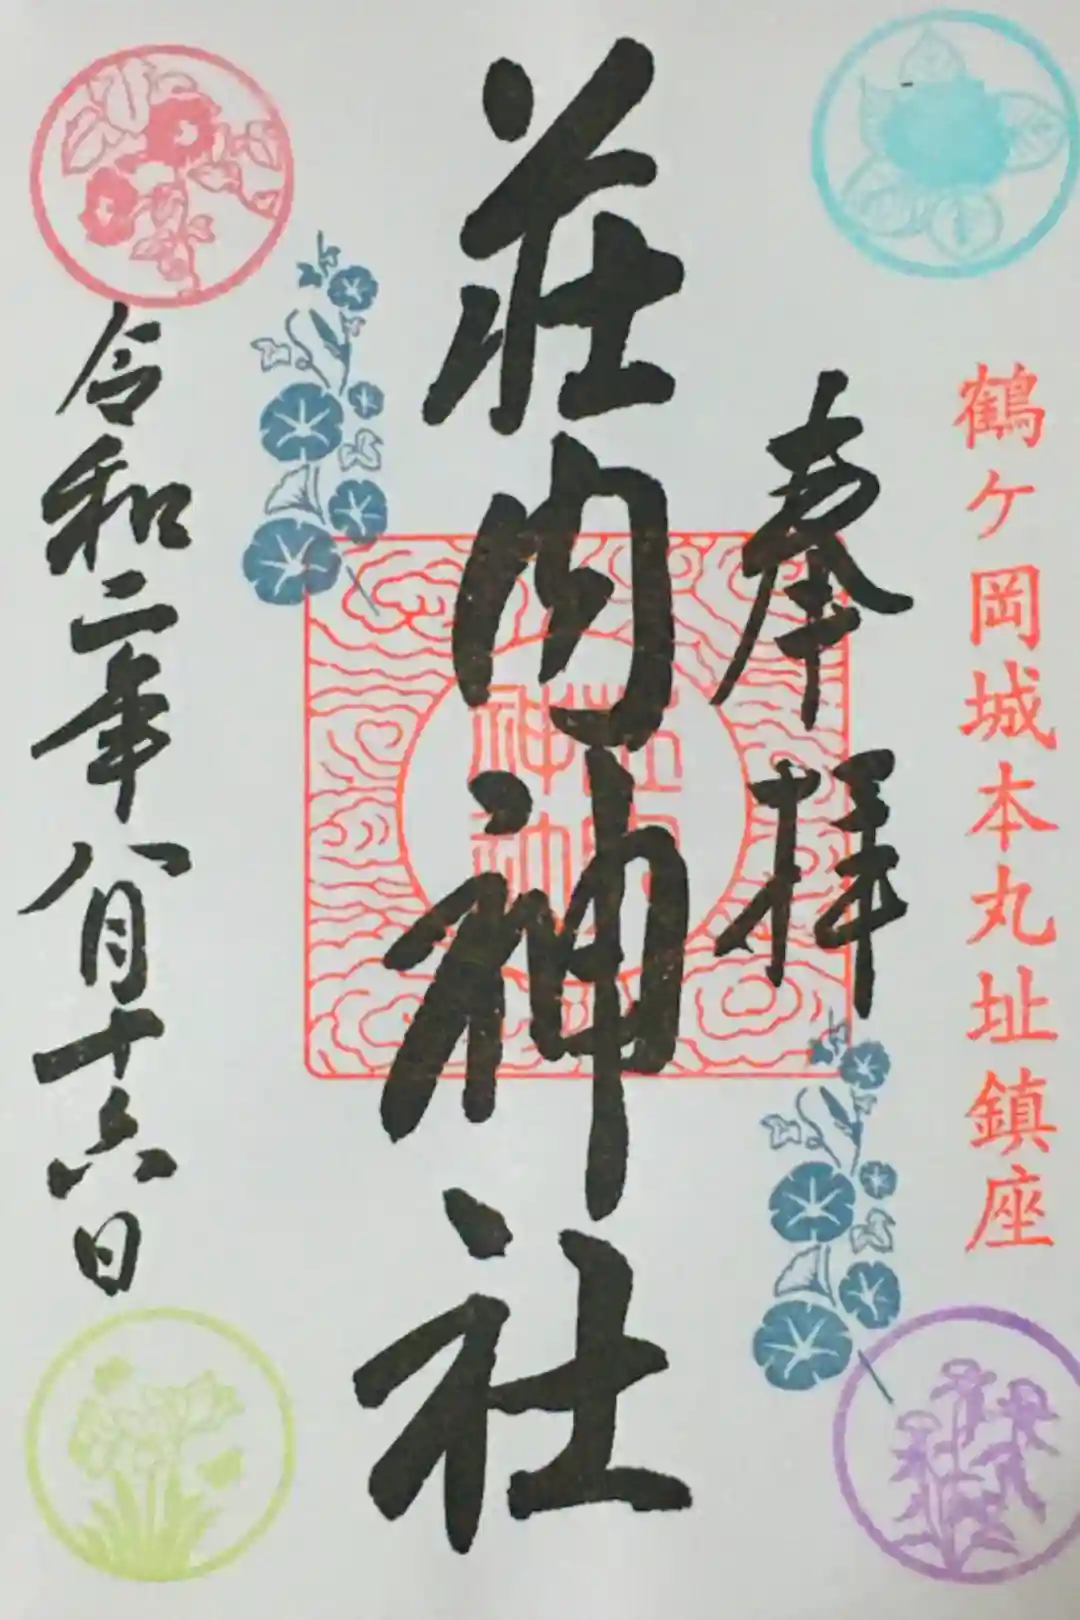 鶴ヶ岡城本丸址鎮座
奉拝
荘内神社
荘内
神社
令和二年八月十六日